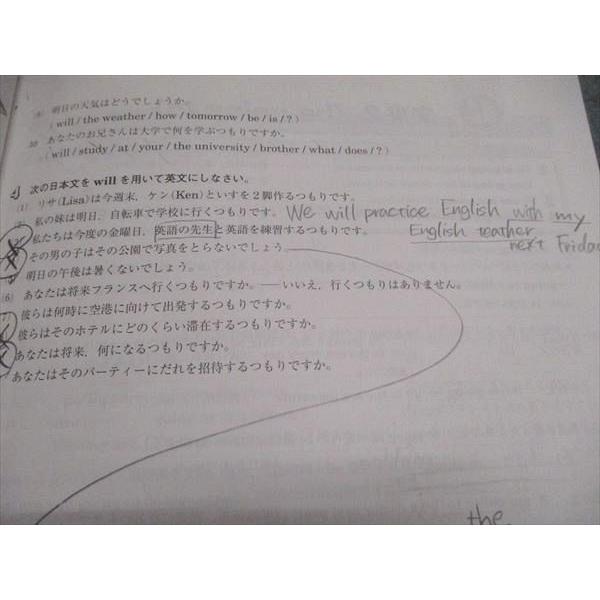 明日の天気はどうでしょうか。
( will / the weather / how / tomorrow / be / is / ? )
10 あなたのお兄さんは大学で何を学ぶつもりですか。
( will / study / at / your / the university / brother / what / does / ? )
次の日本文を will を用いて英文にしなさい。
(1) リサ(Lisa)は今週末，ケン(Ken)といすを2脚作るつもりです。
私の妹は明日，自転車で学校に行くつもりです。 We will practice English with my
私たちは今度の金曜日，英語の先生と英語を練習するつもりです。 English teather
next Friday
その男の子はその公園で写真をとらないでしょう。
明日の午後は暑くないでしょう。
(6) あなたは将来フランスへ行くつもりですか。――いいえ，行くつもりはありません。
彼らは何時に空港に向けて出発するつもりですか。
彼らはそのホテルにどのくらい滞在するつもりですか。
あなたは将来，何になるつもりですか。
あなたはそのパーティーにだれを招待するつもりですか。
the